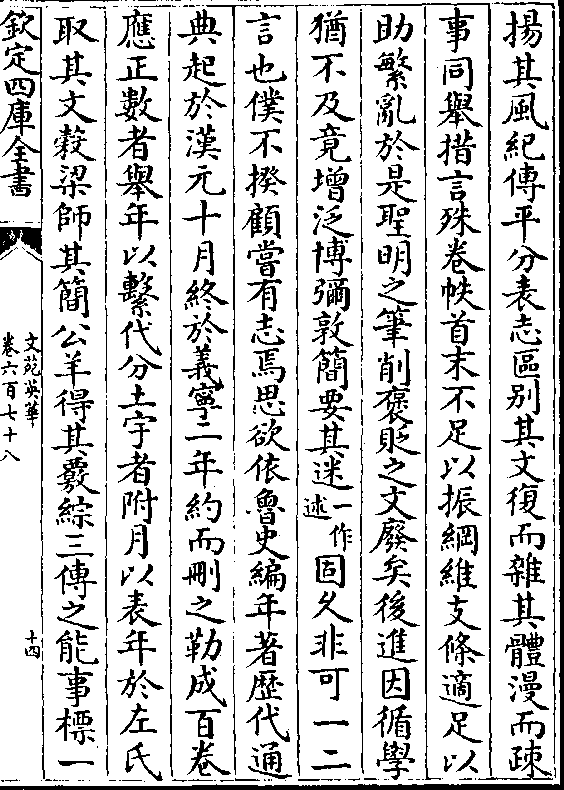 揚其風紀傳平分表志區别其文復而雜其體漫而疎
事同舉措言殊卷帙首末不足以振綱維支條適足以
助繁亂於是聖明之筆削褒貶之文廢矣後進因循學
猶不及竟增泛博彌敦簡要其迷一作述固久非可一二
言也僕不揆顧嘗有志焉思欲依魯史編年著歴代通
典起於漢元十月終於義寧二年約而刪之勒成百卷
應正數者舉年以繫代分土宇者附月以表年於左氏
取其文糓梁師其簡公羊得其覈綜三傳之能事標一
欽定四庫全書
文苑英華
卷六百七十八
十四